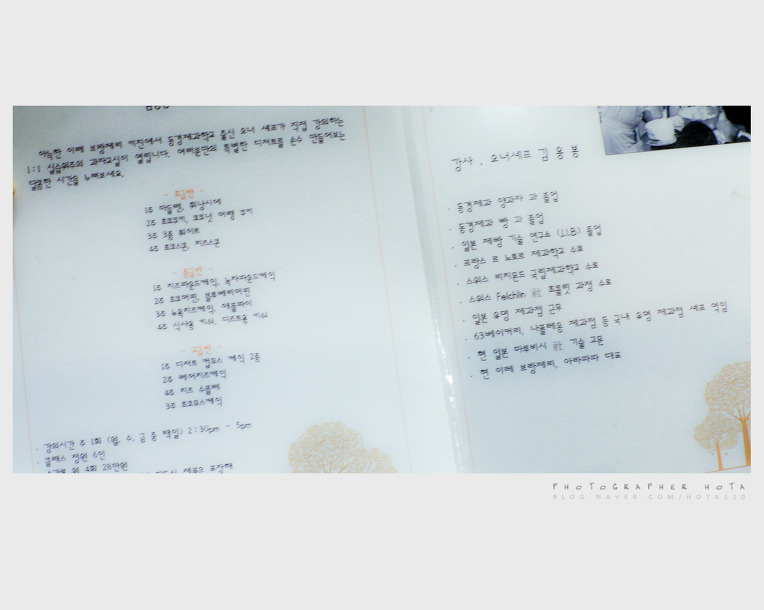 아늑한 이레 브랑제리 키친에서 동경제과학교 출신 오너 셰프가 직접 강의하는
1:1 실습위주의 과자교실이 열립니다. 여러분만의 특별한 디저트를 손수 만들어보는
달콤한 시간을 누려보세요.
- 초급반 -
1주 마들렌, 휘낭시에
2주 초코쿠키, 코코넛 머랭 쿠키
3주 3종 타르트
4주 초코스콘, 치즈스콘
- 중급반 -
1주 치즈파운드케익, 녹차파운드케익
2주 초코머핀, 블루베리머핀
3주 뉴욕치즈케익, 애플파이
4주 식사용 키쉬, 디저트용 키쉬
- 고급반 -
1주 디저트 컵무스 케익 2종
2주 베이치즈케익
4주 치즈 수플레
3주 초코무스케익
· 강의시간 주 1회 (월, 수, 금 중 택일) 2:30pm - 5pm
· 클래스 정원 6인
월 4회 28만원
제품은 포장해
강사 . 오너셰프 김응봉
· 동경제과 양과자 과 졸업
· 동경제과 빵 과 졸업
· 일본 제빵 기술 연구소 (JIB) 졸업
· 프랑스 르 노트르 제과학교 수료
· 스위스 리치몬드 국립제과학교 수료
· 스위스 Felchlin 社 초콜릿 과정 수료
· 일본 유명 제과점 근무
· 63베이커리, 나폴레옹 제과점 등 국내 유명 제과점 셰프 역임
· 현 일본 마루비시 社 기술 고문
· 현 이레 브랑제리, 아하파파 대표
PHOTOGRAPHER HOTA
BLOG.NAVER.COM/HOTA220